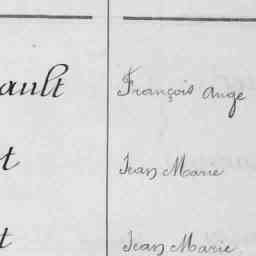 ault François Ange
t Jean Marie
t Jean Marie